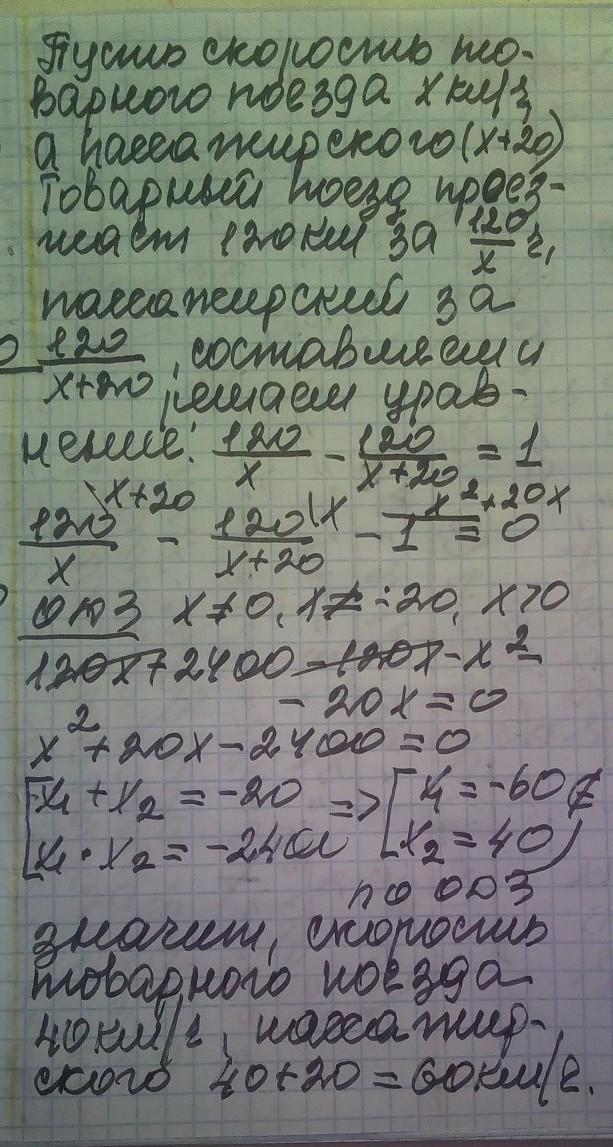 Пусть скорость то-
варного поезда x км/ч,
а пассажирского (x+20)
Товарный поезд проез-
жает 120 км за 120/x ч,
пассажирский за
120/x+20, составляем и
решаем урав-
нение: 120/x - 120/x+20 = 1
120\x+20/x - 120\x/x+20 - 1\x²+20x = 0
ОДЗ x≠0, x≠-20, x>0
120x+2400-120x-x²-
-20x=0
x²+20x-2400=0
[x₁+x₂=-20 => [x₁=-60 ∉
[x₁·x₂=-2400 [x₂=40
по ОДЗ
значит, скорость
товарного поезда
40км/ч, пассажир-
ского 40+20=60км/ч.